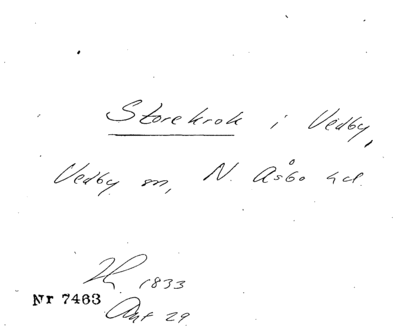 Storekrok i Vedby,
Vedby sn, N. Åsbo hd.
1833
Nr 7463
Akt 29